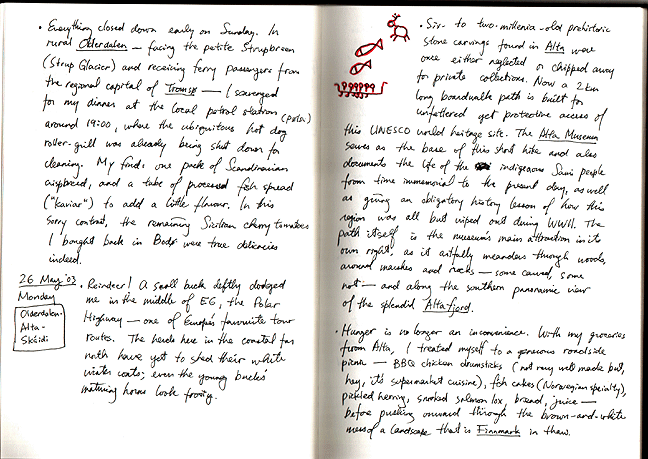 • Everything closed down early on Sunday. In
rural Olderdalen — facing the petite Strupbreen
(Strup Glacier) and receiving ferry passengers from
the regional capital of Tromsø — I scavenged
for my dinner at the local petrol station (polar)
around 19:00, where the ubiquitous hot dog
roller-grill was already being shut down for
cleaning. My find: one pack of Scandinavian
crispbread, and a tube of processed fish spread
("kaviar") to add a little flavour. In this
sorry contrast, the remaining Sicilian cherry tomatoes
I bought back in Bodø were true delicacies
indeed.
26 May '03
Monday
Olderdalen-
Alta-
Skáidi
• Reindeer! A small buck deftly dodged
me in the middle of E6, the Polar
Highway — one of Europe's favourite tour
routes. The herds here in the coastal far
north have yet to shed their white
winter coats; even the young buck's
maturing horns look frosty.
• Six- to two-millenia-old prehistoric
stone carvings found in Alta were
once either neglected or chipped away
for private collections. Now a 2km
long boardwalk path is built for
unfettered yet protective access of
this UNESCO world heritage site. The Alta Museum
serves as the base of this short hike and also
documents the life of the indigenous Sami people
from time immemorial to the present day, as well
as giving an obligatory history lesson of how this
region was all but wiped out during WWII. The
path itself is the museum's main attraction in its
own right, as it artfully meanders through woods,
around marshes and rocks — some carved, some
not — and along the southern panoramic view
of the splendid Alta-fjord.
• Hunger is no longer an inconvenience. With my groceries
from Alta, I treated myself to a generous roadside
picnic — BBQ chicken drumsticks (not very well made but,
hey, it's supermarket cuisine), fish cakes (Norwegian speciality),
pickled herring, smoked salmon lox, bread, juice —
before pushing onward through the brown-and-white
mess of a landscape that is Finnmark in thaw.